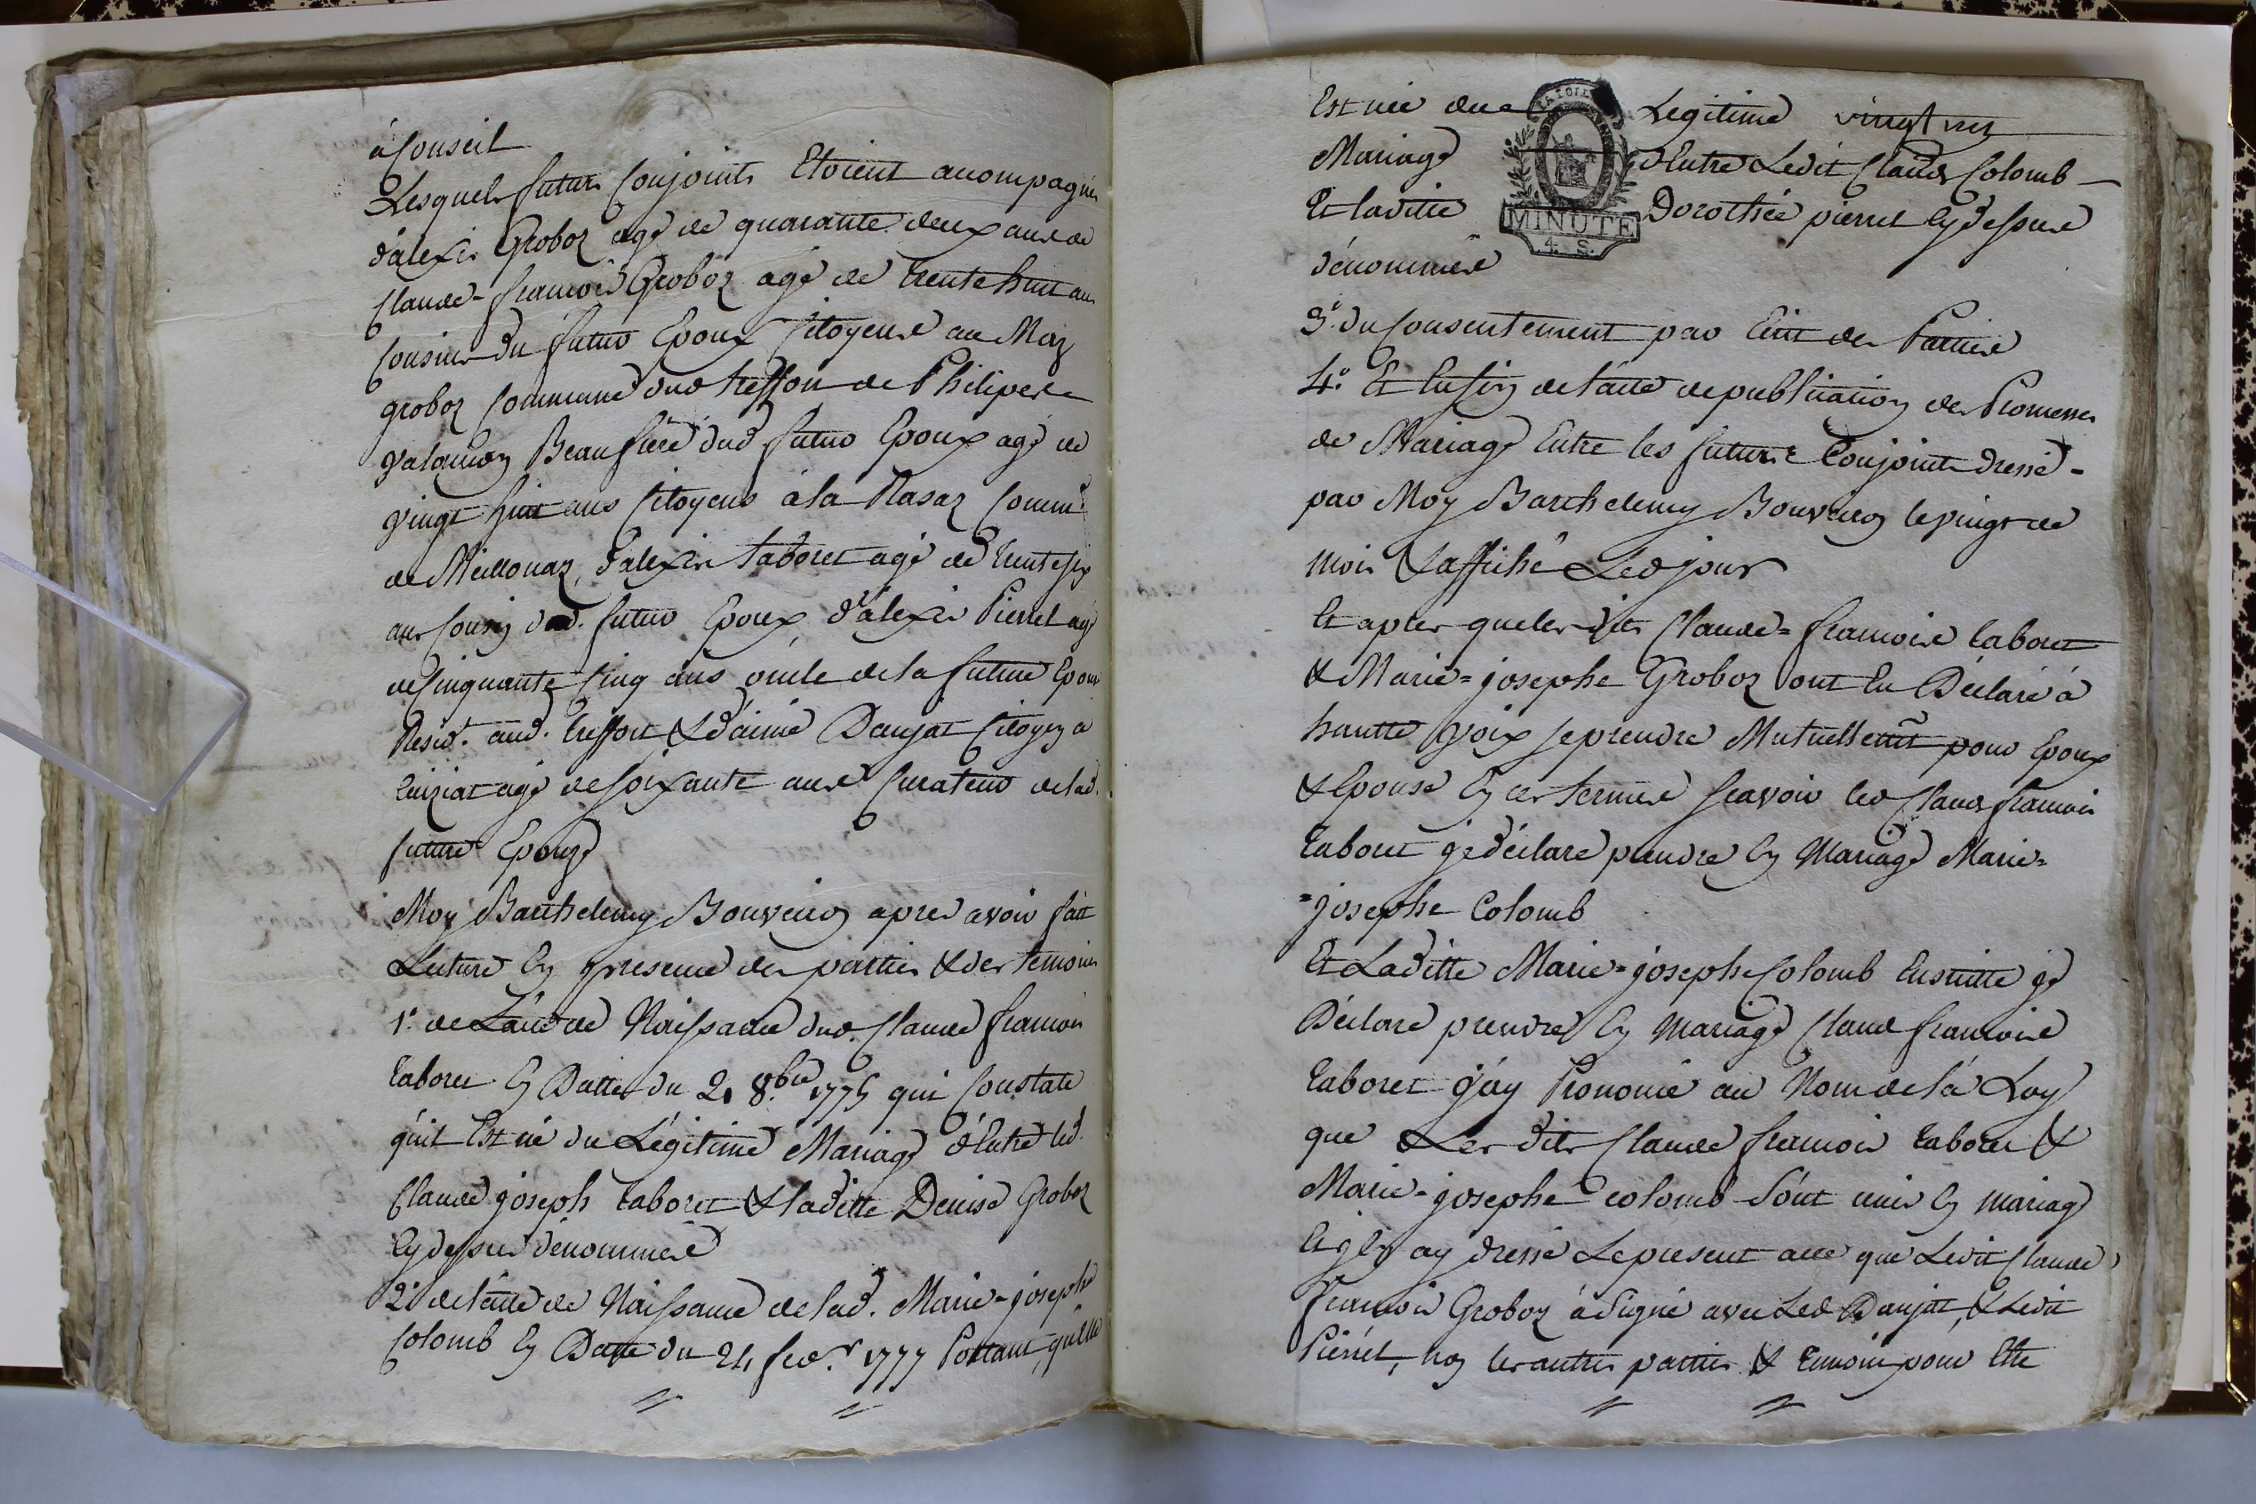 à Conseil
Lesquels futurs Conjoints Etoient acompagnés
d'alexis Groboz agé de quarante deux ans de
Claude-françois Groboz agé de trente huit ans
Cousins du futur Epoux Citoyens au Maz
groboz Commune dud treffort de Philipe
Beaufrère dud futur Epoux agé de
vingt huit ans Citoyens à la Rasaz Comm.
de Meillonaz, d'alexis taboret agé de trente six
ans Cousin dud. futur Epoux, d'alexis Pierret agé
de Cinquante Cinq ans oncle de la future Epouse
Resid.t aud. treffort & d'aimé Danjat Citoyen a
Cuiziat agé de soixante ans Curateur de lad.
future Epouze
Moy Barthelemy Bouveiron apres avoir fait
Lecture En presence des parties & des temoins
1.° de L'acte de Naissance dud. Claude françois
taboret En Datte du 21 8.bre 1775 qui Constate
qu'il Est né du Légitime Mariage d'Entre led.
Claude joseph taboret & laditte Denise Groboz
Cy dessus dénommés
2.° de l'acte de Naissance de lad. Marie-josephe
Colomb En Datte du 24 fev.r 1777 Portant, qu'elle
Est née du Legitime vingt un
Mariage d'Entre Ledit Claude Colomb
Et laditte Dorothée pierret Cy dessus
dénommés
MINUTE
4. S.
3.° du Consentement par Ecrit des Parties
4.° Et Enfin de l'acte de publication des Promesses
de Mariage Entre les futurs Conjoints dressé
par Moy Barthelemy Bouveiron le vingt de
mois & affiché Led jour
Et apres que lesdits Claude=françois taboret
& Marie=josephe Groboz ont Eu Déclaré à
hautte voix se prendre Mutuellemt pour Epoux
& Epouse En ces termes scavoir led Claude françois
taboret je déclare prendre En Mariage Marie=
=josephe Colomb
Et Laditte Marie=josephe Colomb Ensuitte je
Déclare prendre En Mariage Claude françois
taboret j'ay Prononcé au Nom de la Loy
que Les dits Claude françois taboret &
Marie-josephe colomb Sont unis En mariage
Et j'En ay dressé Le present acte que Ledit Claude
François Groboz à Signé avec Led Danjat, & Ledit
Pierret, non les autres parties & temoins pour Etre